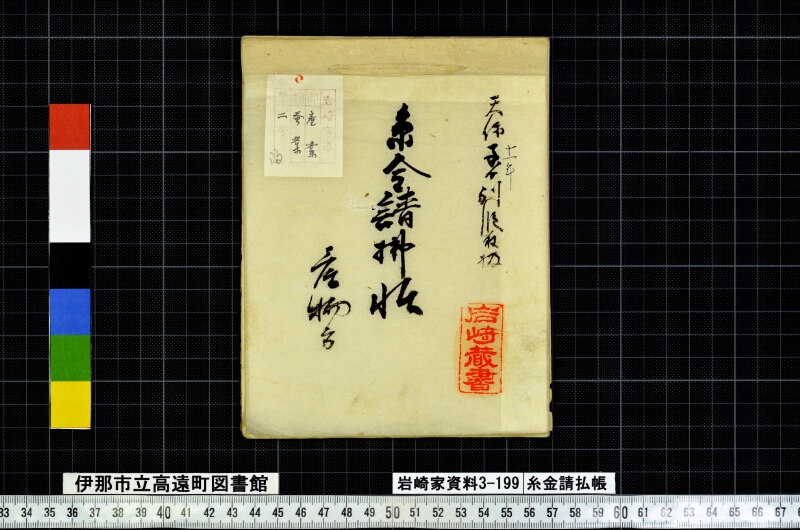 十一年
糸金請拂帳
産物方
岩崎蔵書
産業
蚕業
二
伊那市立高遠町図書館
岩崎家資料3-199
糸金請払帳
33 34 35 36 37 38 39 40 41 42 43 44 45 46 47 48 49 50 51 52 53 54 55 56 57 58 59 60 61 62 63 64 65 66 67